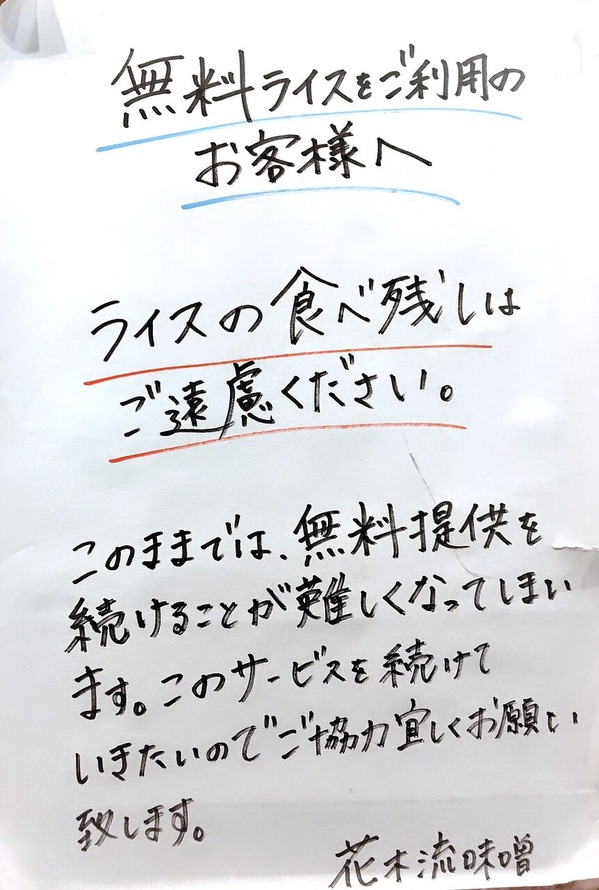 無料ライスをご利用の
お客様へ
ライスの食べ残しは
ご遠慮ください。
このままでは、無料提供を
続けることが難しくなってしまい
ます。このサービスを続けて
いきたいのでご協力宜しくお願い
致します。
花木流味噌